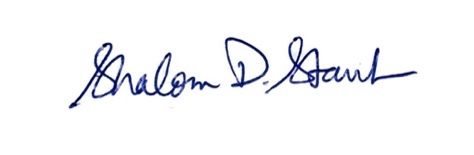 Shalom D. Staub